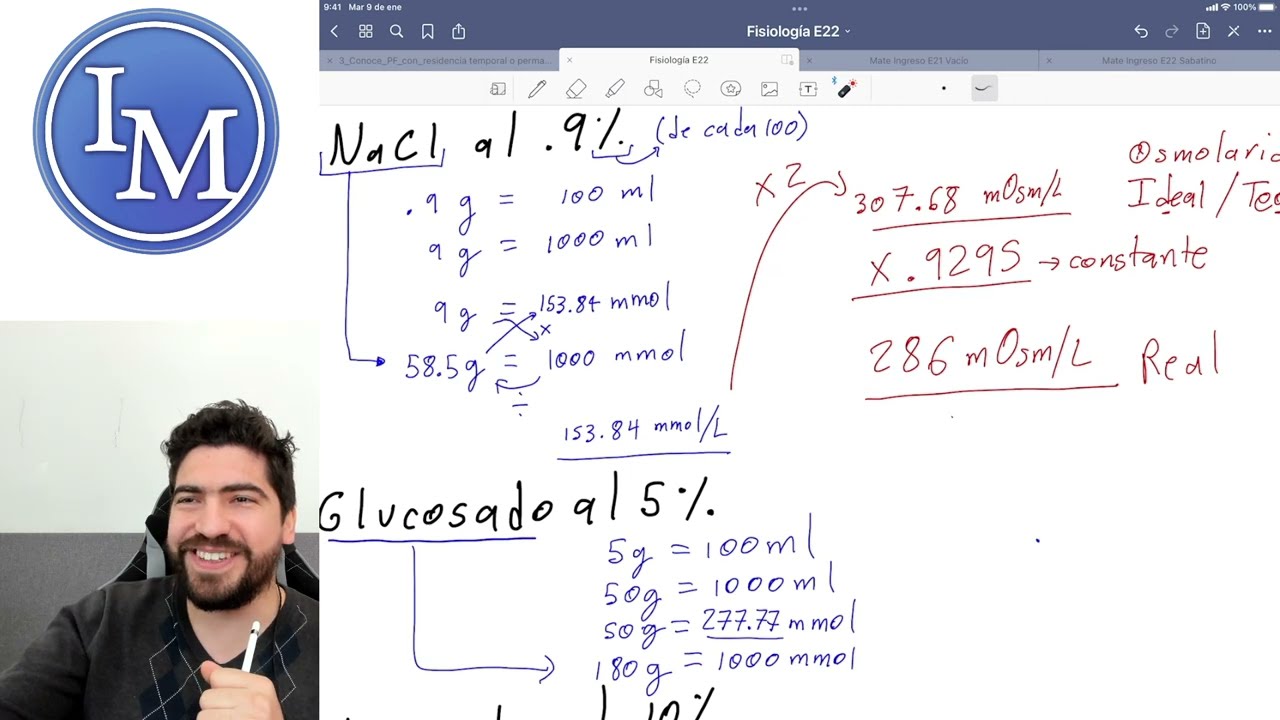 IM
9:41 Mar 9 de ene
100%
Fisiología E22
3_Conoce_PF_con_residencia temporal o perma...
Fisiología E22
Mate Ingreso E21 Vacío
Mate Ingreso E22 Sabatino
NaCl al .9% (de cada 100)
.9 g = 100 ml
9 g = 1000 ml
9 g = 153.84 mmol
x
58.5g = 1000 mmol
÷
153.84 mmol/L
x 2
307.68 mOsm/L
x .9295 → constante
286 mOsm/L Real
Osmolario
Ideal / Teó
Glucosado al 5%
5g = 100 ml
50g = 1000 ml
50g = 277.77 mmol
180g = 1000 mmol
al 10%